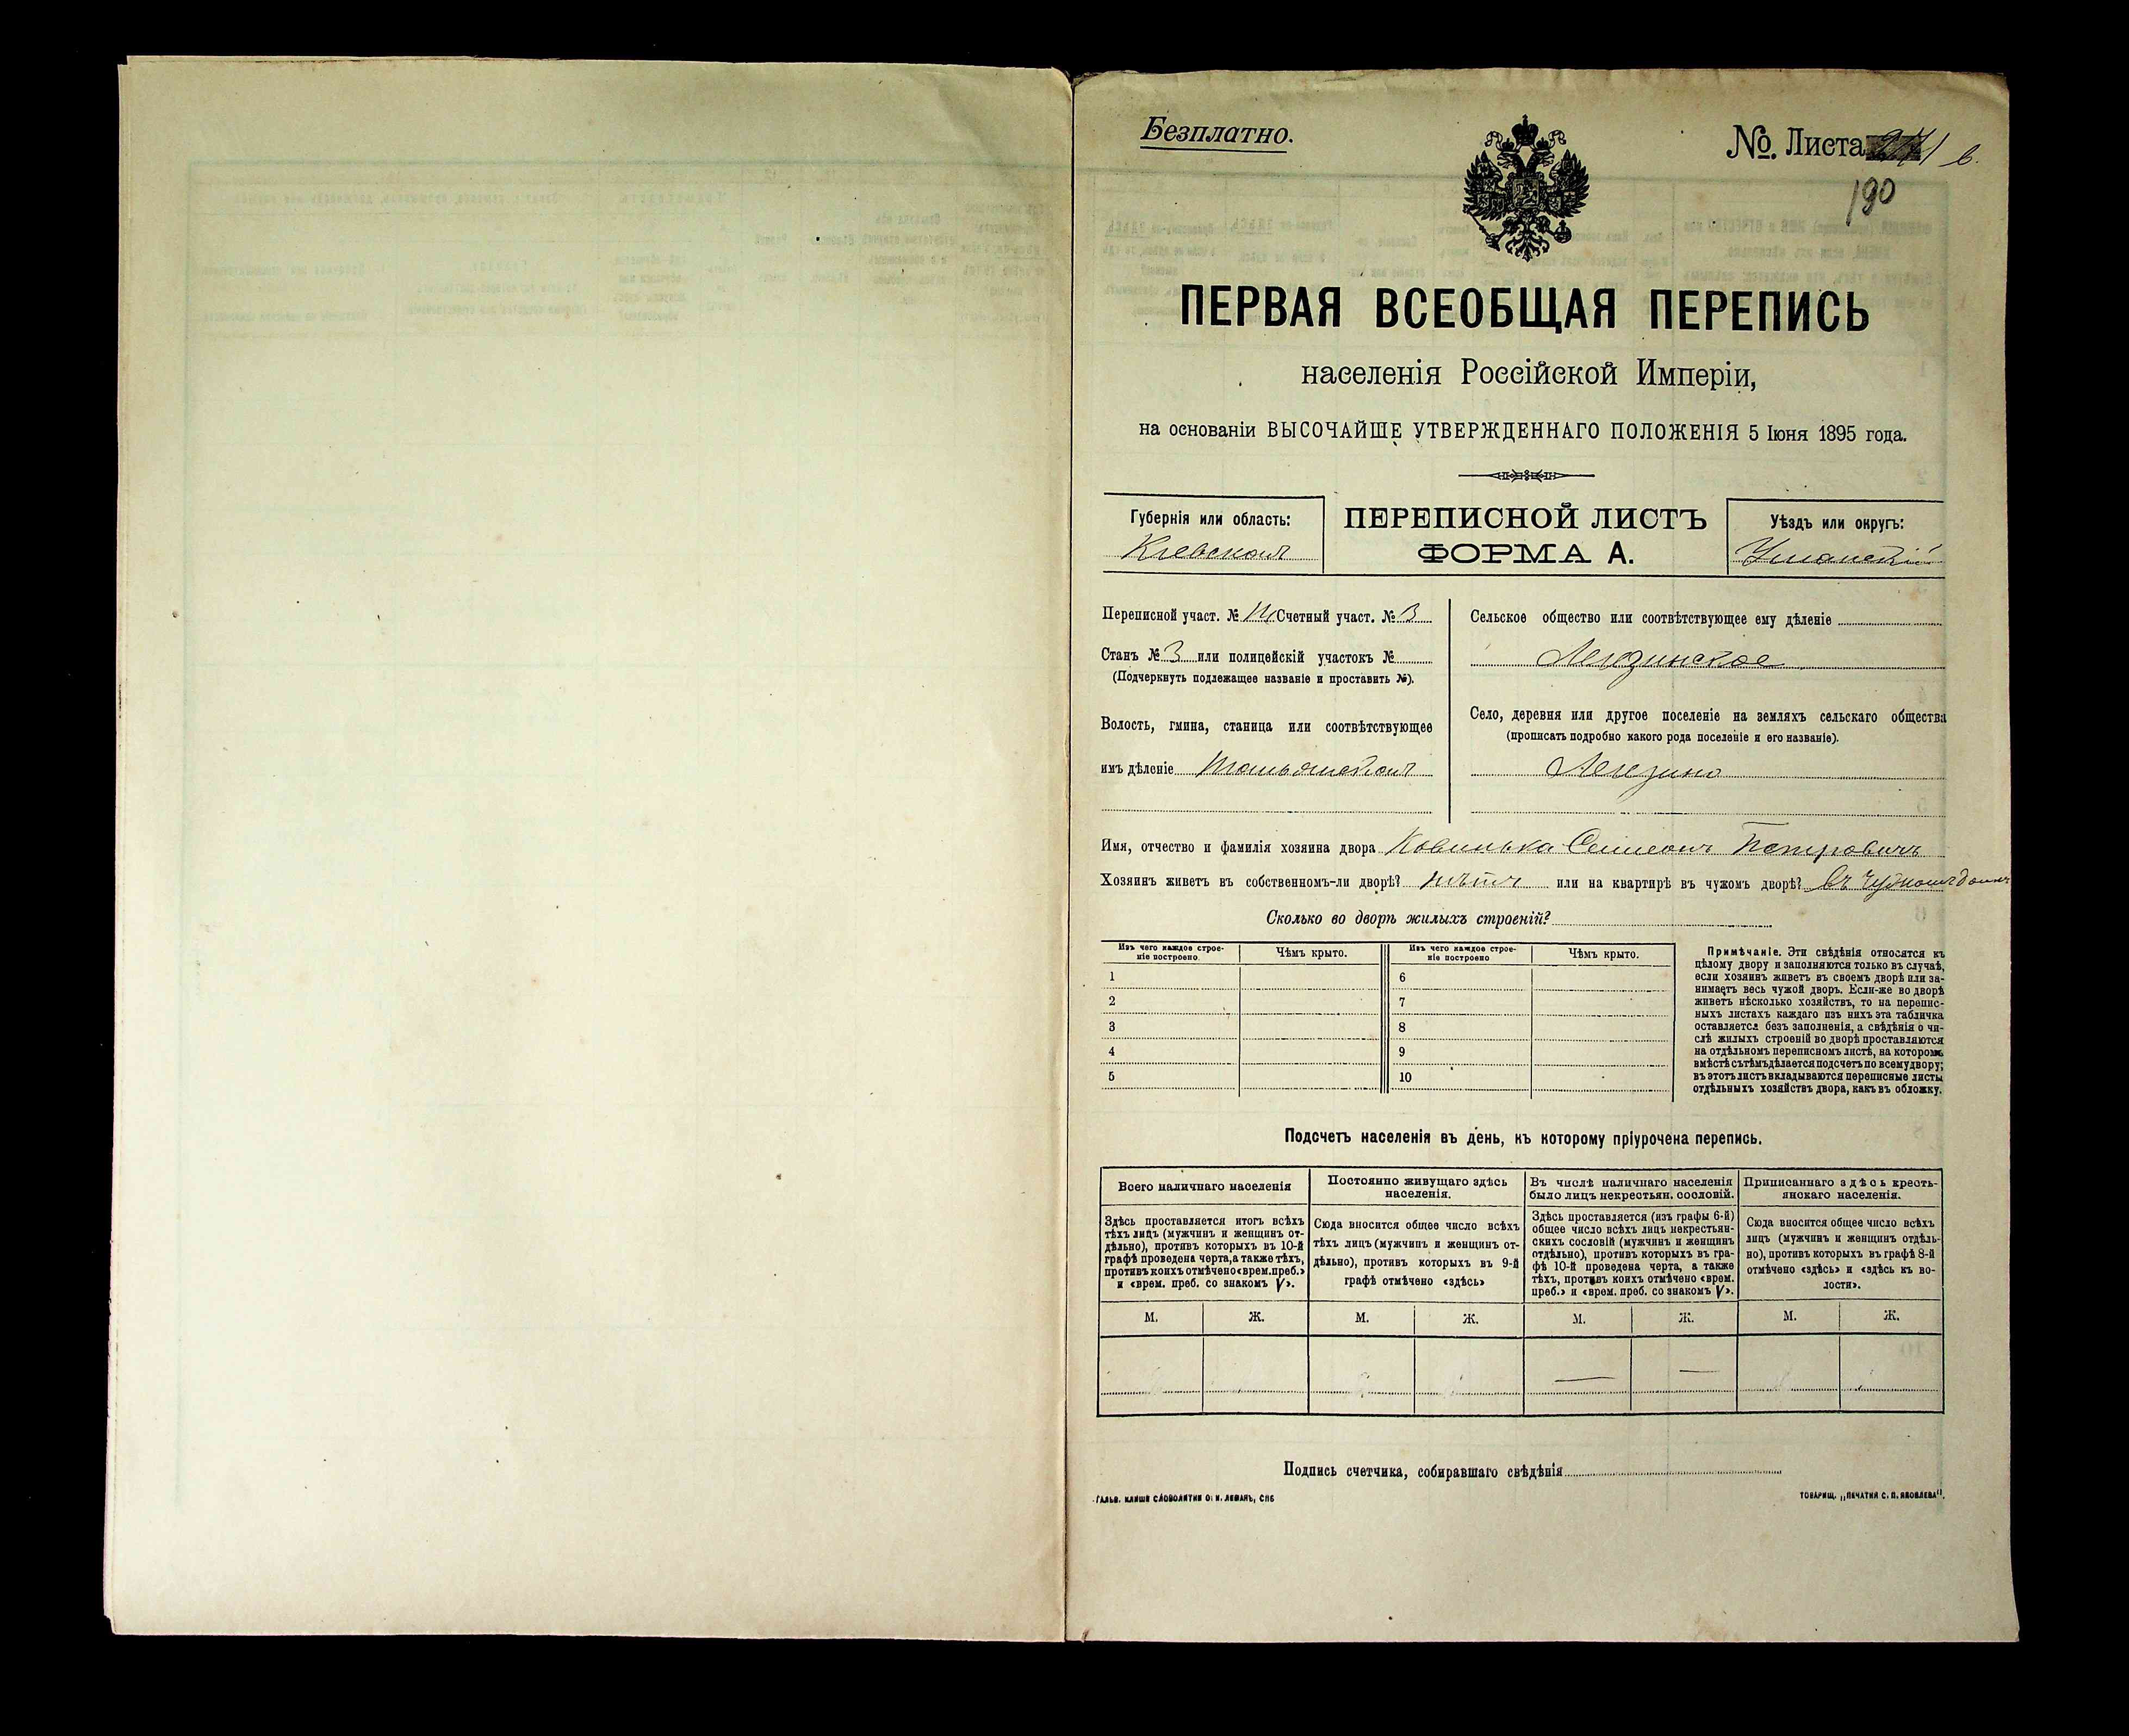 Безплатно.
№. Листа
190
ПЕРВАЯ ВСЕОБЩАЯ ПЕРЕПИСЬ
населенія Россійской Имперіи,
на основаніи ВЫСОЧАЙШЕ УТВЕРЖДЕННАГО ПОЛОЖЕНІЯ 5 Іюня 1895 года.
Губернія или область:
Кіевская
ПЕРЕПИСНОЙ ЛИСТЪ
ФОРМА А.
Уѣздъ или округъ:
Уманскій
Переписной участ. № Счетный участ. № 3
Станъ № 3 или полицейскій участокъ №
(Подчеркнуть подлежащее названіе и проставить №).
Волость, гмина, станица или соотвѣтствующее
имъ дѣленіе
Сельское общество или соотвѣтствующее ему дѣленіе
Легезинское
Село, деревня или другое поселеніе на земляхъ сельскаго общества
(прописать подробно какого рода поселеніе и его названіе).
Легезино
Имя, отчество и фамилія хозяина двора Ковинька Семеонъ Петровичъ
Хозяинъ живетъ въ собственномъ-ли дворѣ? нѣтъ или на квартирѣ въ чужомъ дворѣ? въ чужомъ домѣ
Сколько во дворѣ жилыхъ строеній?
Изъ чего каждое строе-
ніе построено.
Чѣмъ крыто.
Изъ чего каждое строе-
ніе построено
Чѣмъ крыто.
1
6
2
7
3
8
4
9
5
10
Примѣчаніе. Эти свѣдѣнія относятся къ
цѣлому двору и заполняются только въ случаѣ,
если хозяинъ живетъ въ своемъ дворѣ или за-
нимаетъ весь чужой дворъ. Если-же во дворѣ
живетъ нѣсколько хозяйствъ, то на перепис-
ныхъ листахъ каждаго изъ нихъ эта табличка
оставляется безъ заполненія, а свѣдѣнія о чи-
слѣ жилыхъ строеній во дворѣ проставляются
на отдѣльномъ переписномъ листѣ, на которомъ
вмѣстѣ съ тѣмъ дѣлается подсчетъ по всему двору;
въ этотъ листъ вкладываются переписные листы
отдѣльныхъ хозяйствъ двора, какъ въ обложку.
Подсчетъ населенія въ день, къ которому пріурочена перепись.
Всего наличнаго населенія
Здѣсь проставляется итогъ всѣхъ
тѣхъ лицъ (мужчинъ и женщинъ от-
дѣльно), противъ которыхъ въ 10-й
графѣ проведена черта, а также тѣхъ,
противъ коихъ отмѣчено «врем. преб.»
и «врем. преб. со знакомъ V».
Постоянно живущаго здѣсь
населенія.
Сюда вносится общее число всѣхъ
тѣхъ лицъ (мужчинъ и женщинъ от-
дѣльно), противъ которыхъ въ 9-й
графѣ отмѣчено «здѣсь»
Въ числѣ наличнаго населенія
было лицъ некрестьян. сословій.
Здѣсь проставляется (изъ графы 6-й)
общее число всѣхъ лицъ некрестьян-
скихъ сословій (мужчинъ и женщинъ
отдѣльно), противъ которыхъ въ гра-
фѣ 10-й проведена черта, а также
тѣхъ, противъ коихъ отмѣчено «врем.
преб.» и «врем. преб. со знакомъ V».
Приписаннаго здѣсь кресть-
янскаго населенія.
Сюда вносится общее число всѣхъ
лицъ (мужчинъ и женщинъ отдѣль-
но), противъ которыхъ въ графѣ 8-й
отмѣчено «здѣсь» и «здѣсь къ во-
лости».
М. Ж. М. Ж. М. Ж. М. Ж.
Подпись счетчика, собиравшаго свѣдѣнія
ГАЛЬВ. КЛИШЕ СЛОВОЛИТНИ О. И. ЛЕМАНЪ, СПБ
ТОВАРИЩ. „ПЕЧАТНЯ С. П. ЯКОВЛЕВА".